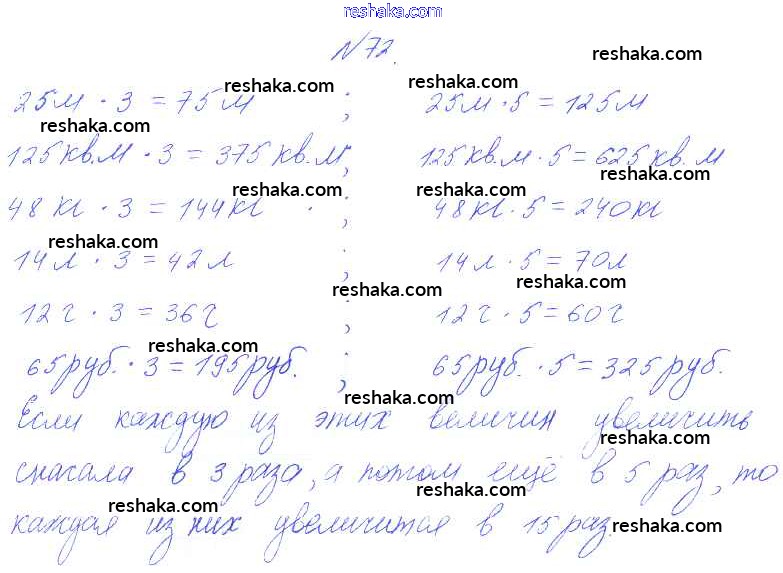 reshaka.com
N72.
reshaka.com
25м · 3 = 75м ; 25м · 5 = 125м
reshaka.com reshaka.com
reshaka.com
125кв.м · 3 = 375кв.м; 125кв.м · 5 = 625кв.м
reshaka.com
reshaka.com reshaka.com
48 кг · 3 = 144кг ; 48кг · 5 = 240кг
reshaka.com
14л · 3 = 42л ; 14л · 5 = 70л
reshaka.com reshaka.com
12ч · 3 = 36ч ; 12ч · 5 = 60ч
reshaka.com
65руб. · 3 = 195руб. ; 65руб. · 5 = 325руб.
reshaka.com
Если каждую из этих величин увеличить
reshaka.com
сначала в 3 раза, а потом ещё в 5 раз, то
reshaka.com
reshaka.com
каждая из них увеличится в 15 раз.
reshaka.com